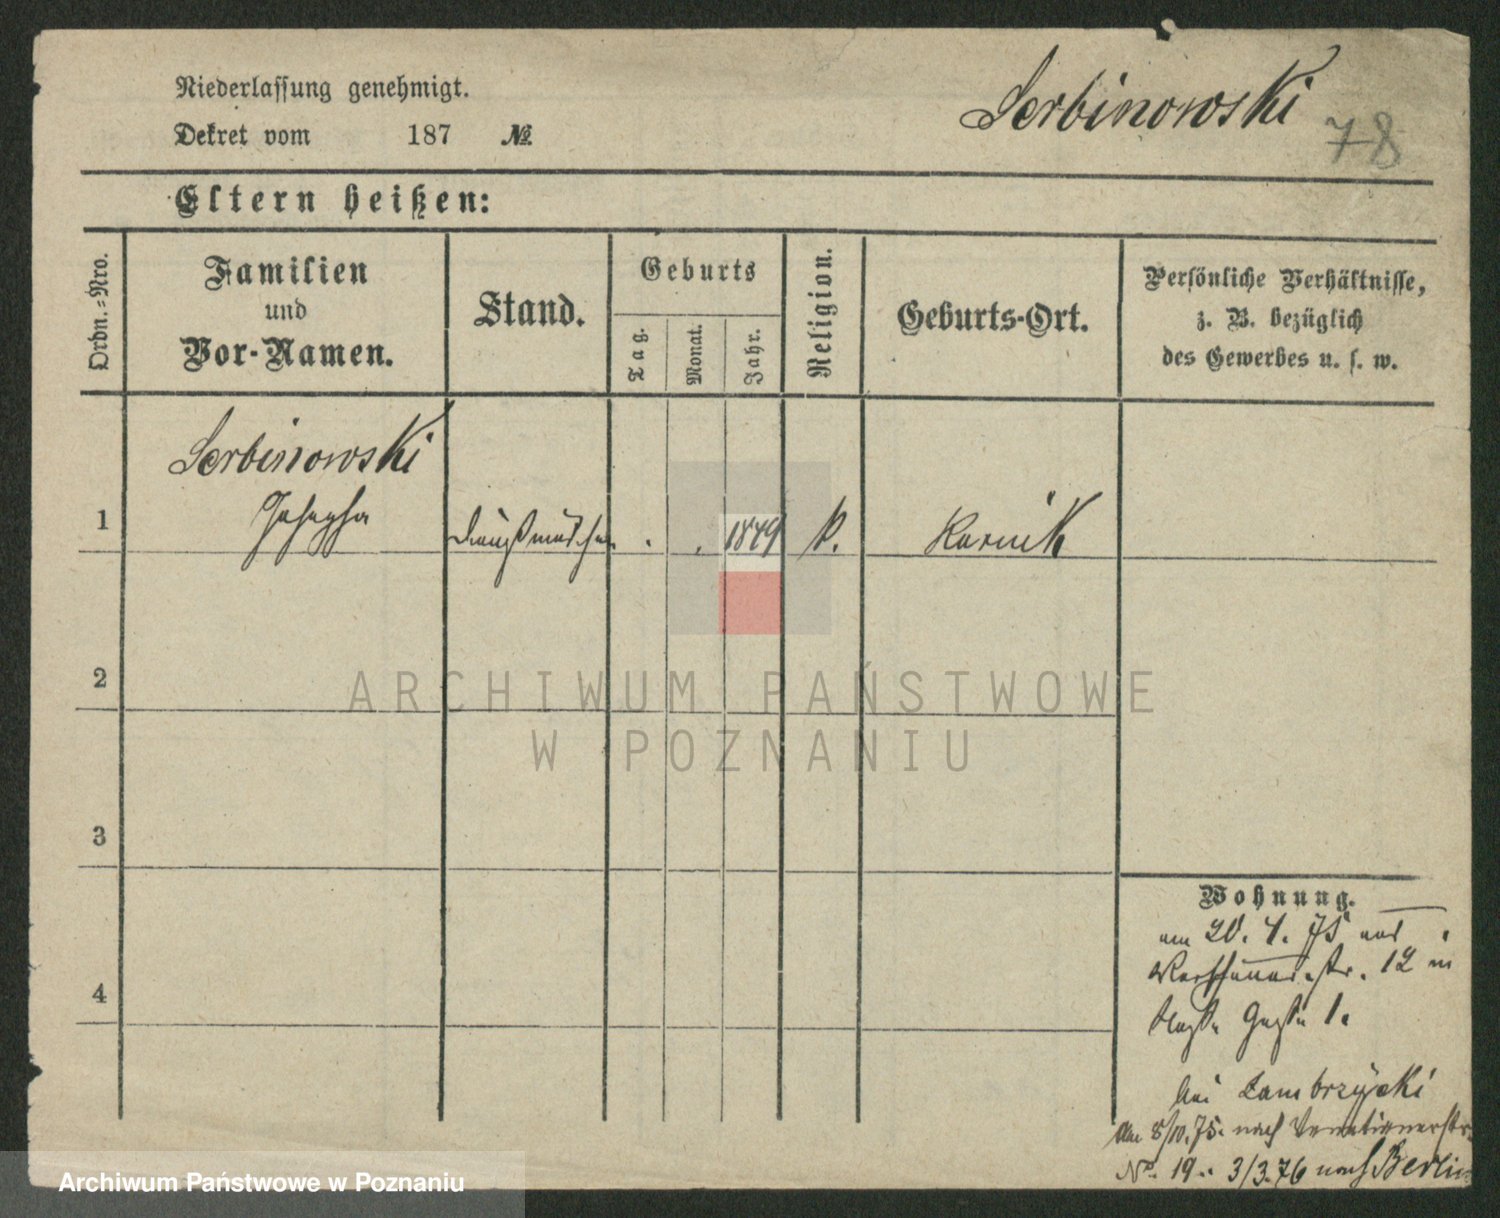 Niederlassung genehmigt.
Dekret vom 187 №
Serbinowski
78
Eltern heißen:
Ordn.-Nro.
Familien
und
Vor-Namen.
Stand.
Geburts
Tag.
Monat.
Jahr.
Religion.
Geburts-Ort.
Persönliche Verhältnisse,
z. B. bezüglich
des Gewerbes u. s. w.
Serbinowski
1 Josepha Dienstmädchen . . 1849 k. Kurnik
2
ARCHIWUM PAŃSTWOWE
W POZNANIU
3
Wohnung.
am 20. 4. 75 aus
str. 12 in
1.
4
bei Dambrzycki
Am 8/10. 75. nach Venetianerstr.
No. 19. 3/3.76 nach Berlin
Archiwum Państwowe w Poznaniu